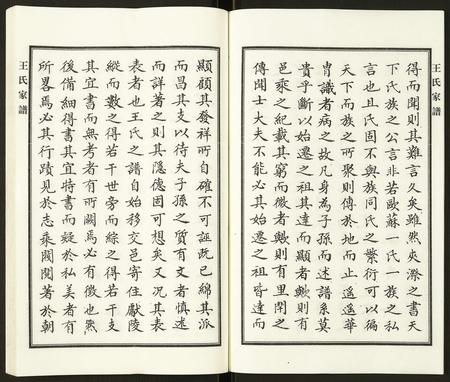 王氏家譜
得而聞則其難言久矣雖然夾漈之書天
下氏族之公言非若歐蘇一氏一族之私
言也且氏固不與族同氏之繁衍可以徧
天下而族之所聚則傅於地而止遥遥華
冑識者病之故凡身為子孫而述譜系莫
貴乎斷以始遷之祖其達而顯者歟則有
邑乘之紀載其窮而微者歟則有里閈之
傳聞士大夫不能必其始遷之祖皆達而
顯顧其發祥所自確不可誣既已綿其派
而昌其支以待夫子孫之質有文者慎述
而詳著之則其隱德固可想矣又况其表
表者也王氏之譜自始移交邑寄住獻陵
縱而數之得若干世旁而綜之得若干支
其宜書而無考者有所闕焉必有徵也然
後備細得書其宜特書而疑於私美者有
所畧焉必其行蹟見於志乘閥閱著於朝
王氏家譜